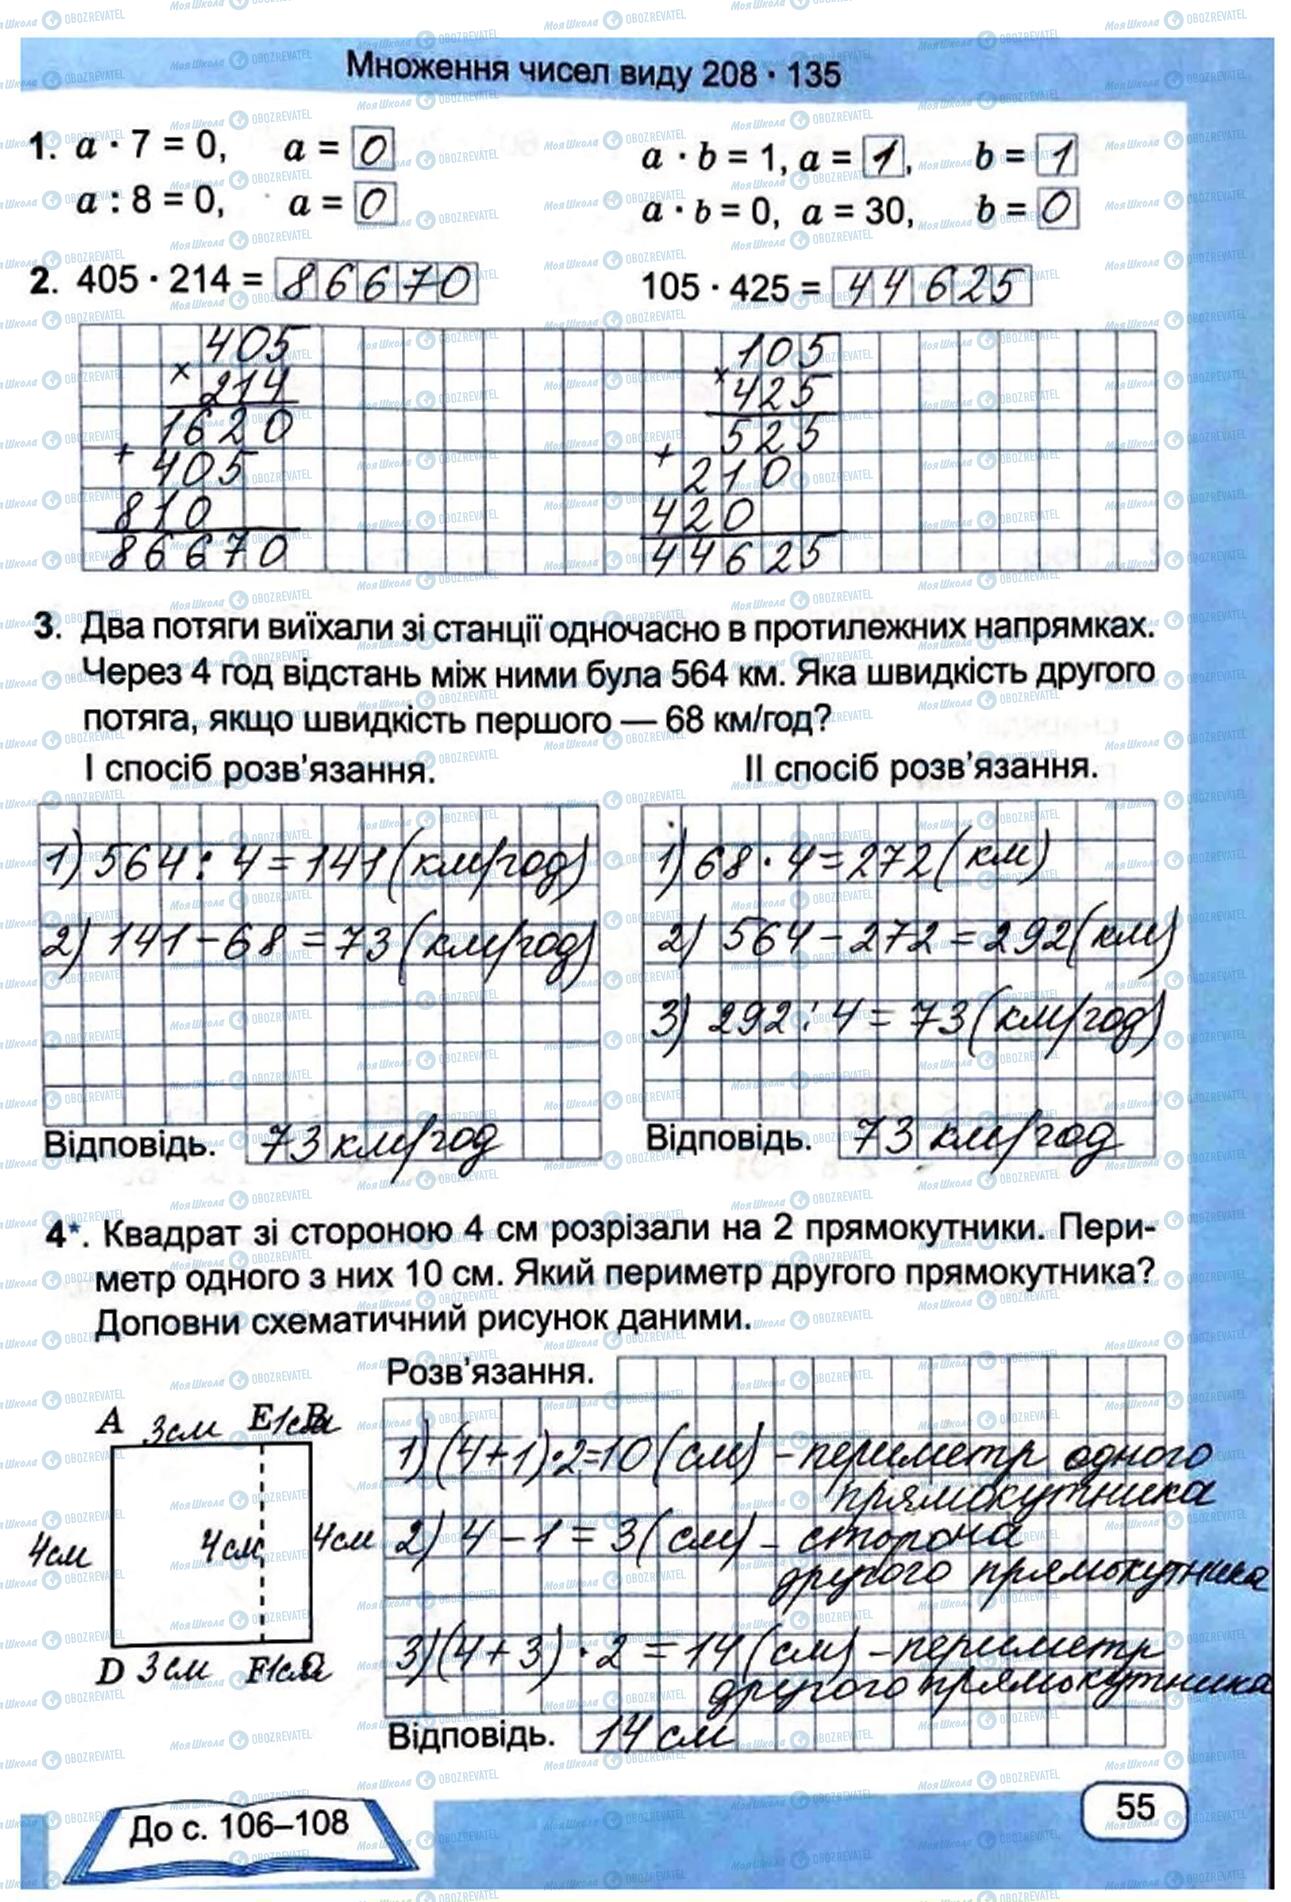 Множення чисел виду 208 · 135
1. a · 7 = 0, a = 0 a · b = 1, a = 1, b = 1
a : 8 = 0, a = 0 a · b = 0, a = 30, b = 0
2. 405 · 214 = 86670 105 · 425 = 44625
405 105
× 214 × 425
1620 525
+ 405 + 210
810 420
86670 44625
3. Два потяги виїхали зі станції одночасно в протилежних напрямках.
Через 4 год відстань між ними була 564 км. Яка швидкість другого
потяга, якщо швидкість першого — 68 км/год?
І спосіб розв'язання. ІІ спосіб розв'язання.
1) 564 : 4 = 141 (км/год) 1) 68 · 4 = 272 (км)
2) 141 - 68 = 73 (км/год) 2) 564 - 272 = 292 (км)
3) 292 : 4 = 73 (км/год)
Відповідь. 73 км/год Відповідь. 73 км/год
4*. Квадрат зі стороною 4 см розрізали на 2 прямокутники. Пери-
метр одного з них 10 см. Який периметр другого прямокутника?
Доповни схематичний рисунок даними.
Розв'язання.
A 3см E 1см B
1) (4+1)·2=10 (см) - периметр одного
прямокутника
4см 4см 4см
2) 4 - 1 = 3 (см) - сторона
другого прямокутника
3) (4+3) · 2 = 14 (см) - периметр
другого прямокутника
D 3см F 1см C
Відповідь. 14 см
До с. 106–108
55
МояШкола OBOZREVATEL